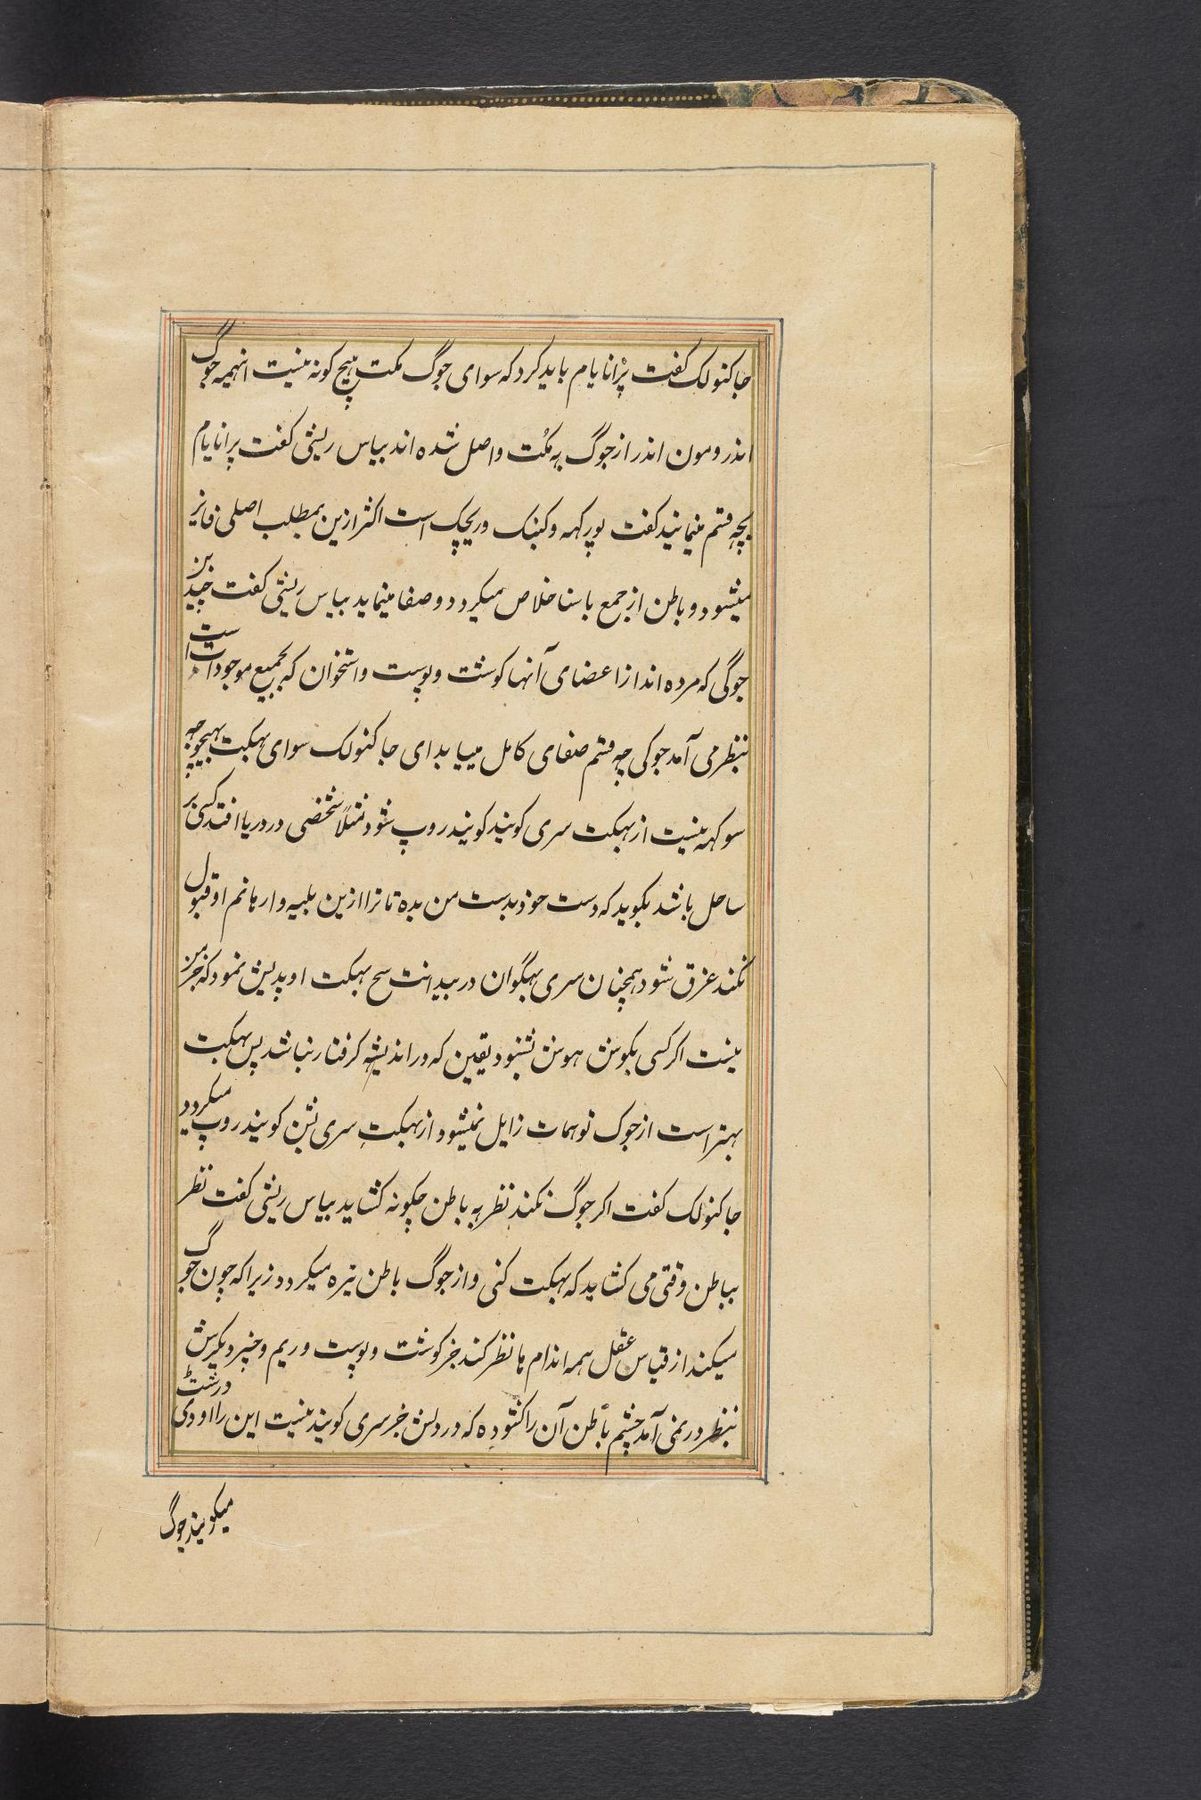 جاکنولک گفت پرانایام باید کرد که سوای جوگ مکت هیچ گونه نیست اینهمه جوگ
اندر و مون اندر از جوگ به مکت واصل شده اند بیاس ریشی گفت پرانایام
بچه قسم مینمایند گفت پورکهه و کنبک و ریچک است اکثر ازین بمطلب اصلی فایز
میشود و باطن از جمع باسنا خلاص میکردد و صفا مینماید بیاس ریشی گفت چندین
جوگی که مرده اند از اعضای آنها کوشت و پوست و استخوان که بجمیع موجودات است
بنظر می آمد جوکی چه قسم صفای کامل مییابد ای جاکنولک سوای بهکت بهیچوجه
سوکهه نیست از بهکت سری کوبند کوبند روپ شود مثلاً شخصی در دریا افتد کسی بر
ساحل باشد بکوید که دست خود بدست من بده تا ترا ازین بلیه وارهانم او قبول
نکند غرق شود همچنان سری بهگوان در بیدانت سح بهکت اوپدیش نمود که جز من
نیست اکر کسی بکوش هوش بشنود یقین که در اندیشه کرفتار نباشد پس بهکت
بهتر است از جوک توهمات زایل نمیشود از بهکت سری بشن کوبند روپ میکردد
جاکنولک گفت اکر جوگ نکند نظر به باطن چکونه کشاید بیاس ریشی گفت نظر
بباطن وقتی می کشاید که بهکت کنی و از جوگ باطن تیره میکردد زیرا که چون جوگ
میکند از قیاس عقل همه اندام ها نظر کند جز کوشت و پوست و ریم و چیز دیگرش
بنظر در نمی آمد چشم باطن آن را کشوده که در دلش جز سری کوبند نیست این را اودی درشت
میکویند جوگ